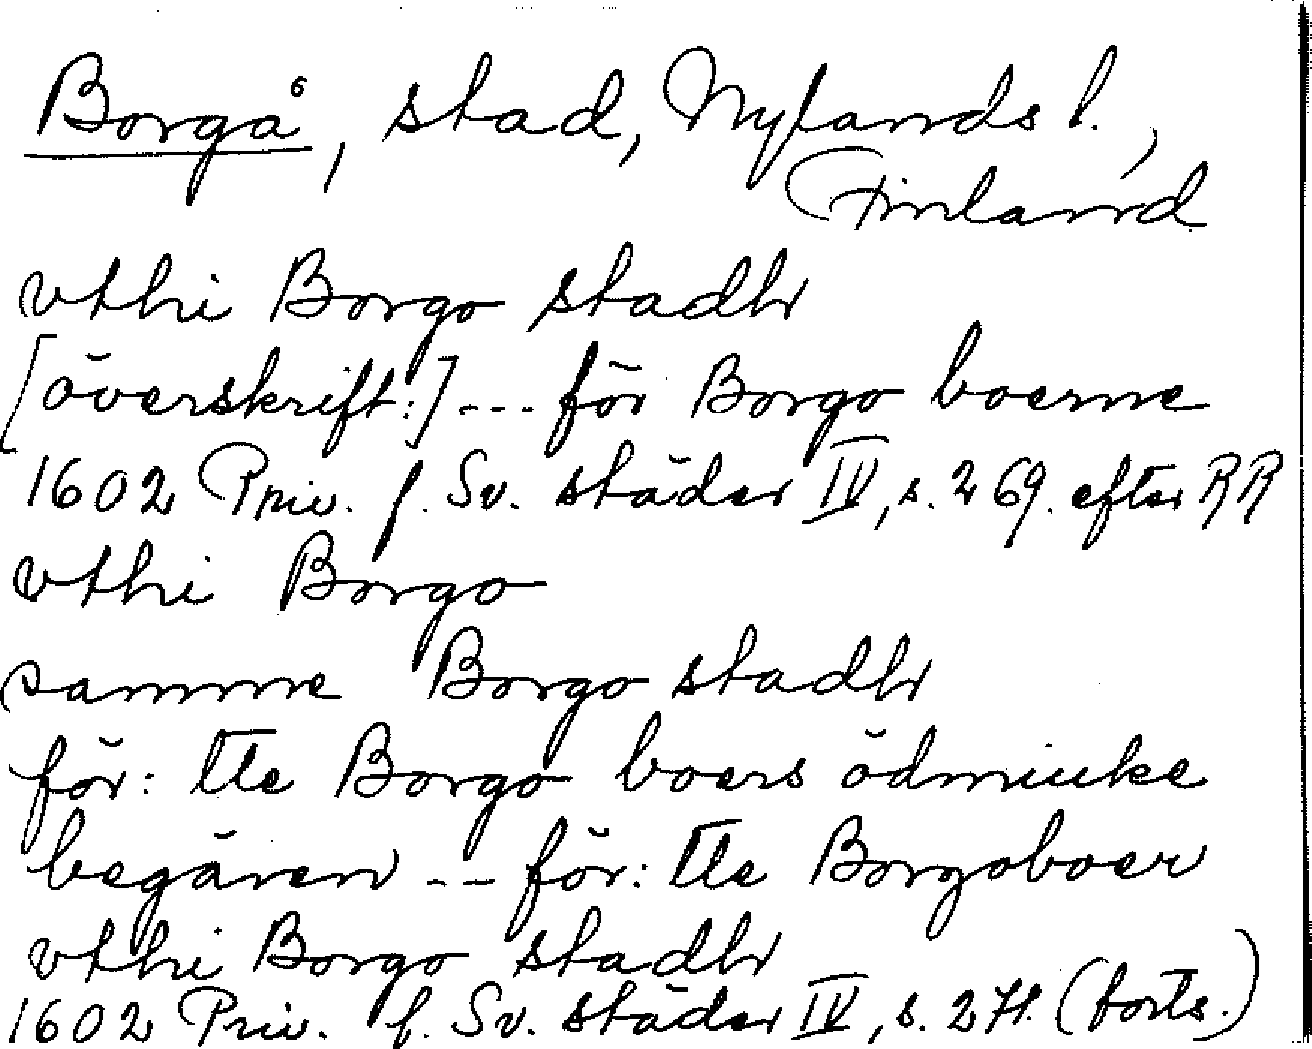 Borgå, stad, Nylands l.,
Finland
vthi Borgo stadh
[överskrift:] --- för Borgo boerne
1602 Priv. f. Sv. städer IV, s. 269. efter RR
vthi Borgo
samme Borgo stadh
för: tte Borgo boers ödmiuke
begären -- för: tte Borgoboer
vthi Borgo stadh
1602 Priv. f. Sv. städer IV, s. 271. (forts.)